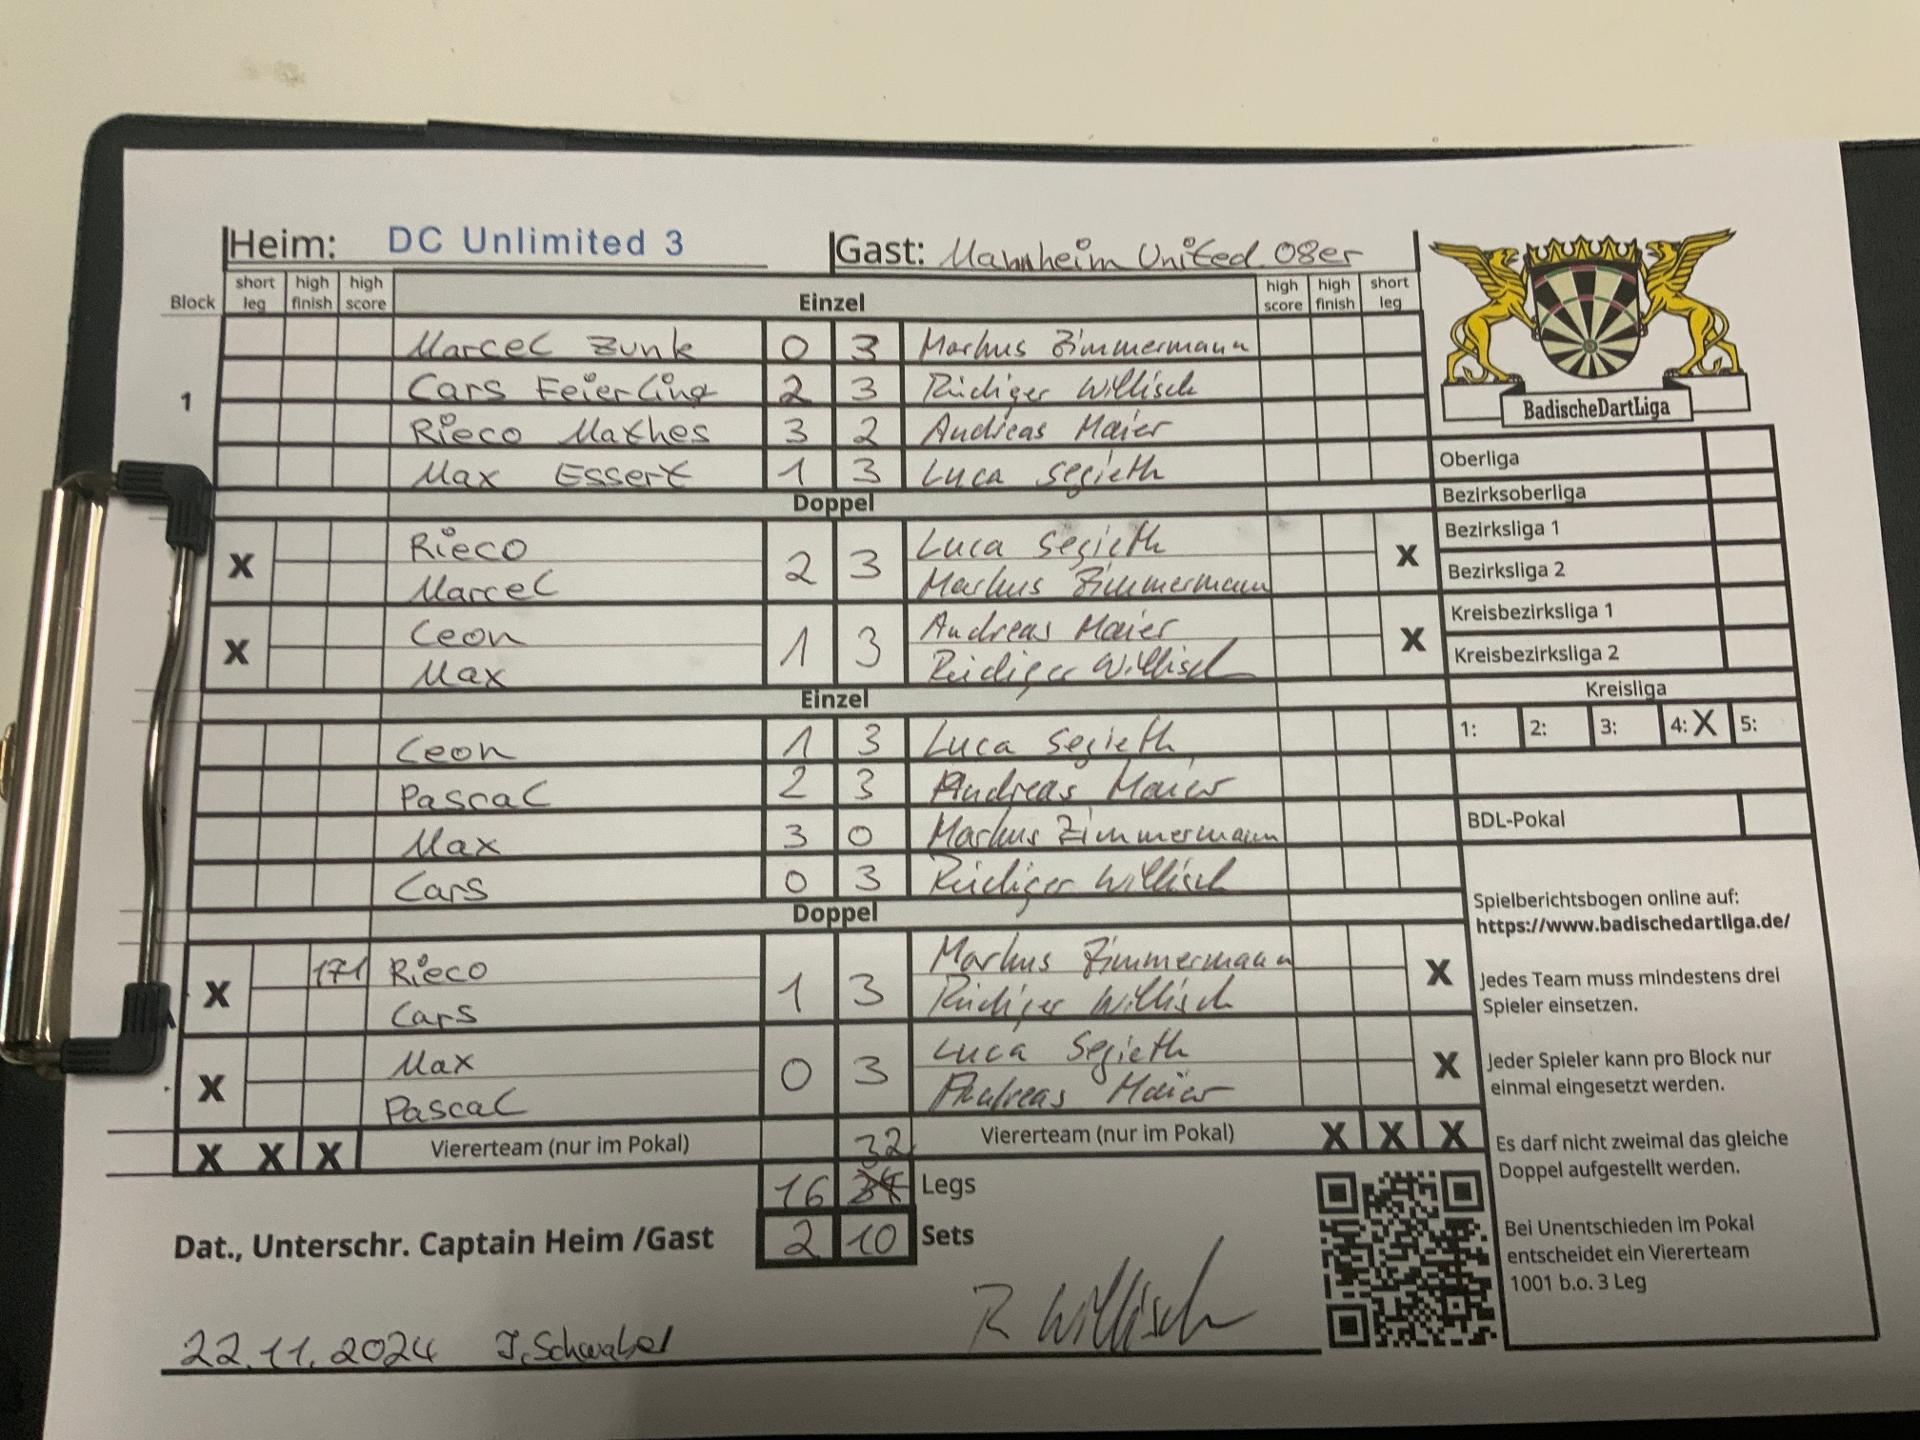 Heim: DC Unlimited 3 Gast: Mannheim United 08er
Block short leg high finish high score Einzel high score high finish short leg
1
Marcel Zunk 0 3 Markus Zimmermann
Lars Feierling 2 3 Rüdiger Willisch
Rieco Mathes 3 2 Andreas Maier
Max Essert 1 3 Luca Segieth
Doppel
X Rieco 2 3 Luca Segieth X
Marcel Markus Zimmermann
X Leon 1 3 Andreas Maier X
Max Rüdiger Willisch
Einzel
Leon 1 3 Luca Segieth
Pascal 2 3 Andreas Maier
Max 3 0 Markus Zimmermann
Lars 0 3 Rüdiger Willisch
Doppel
X 171 Rieco 1 3 Markus Zimmermann X
Lars Rüdiger Willisch
X Max 0 3 Luca Segieth X
Pascal Andreas Maier
X X X Viererteam (nur im Pokal) 32 Viererteam (nur im Pokal) X X X
16 Legs
Dat., Unterschr. Captain Heim /Gast 2 10 Sets
22.11.2024 R Willisch
BadischeDartLiga
Oberliga
Bezirksoberliga
Bezirksliga 1
Bezirksliga 2
Kreisbezirksliga 1
Kreisbezirksliga 2
Kreisliga
1: 2: 3: 4: X 5:
BDL-Pokal
Spielberichtsbogen online auf:
https://www.badischedartliga.de/
Jedes Team muss mindestens drei
Spieler einsetzen.
Jeder Spieler kann pro Block nur
einmal eingesetzt werden.
Es darf nicht zweimal das gleiche
Doppel aufgestellt werden.
Bei Unentschieden im Pokal
entscheidet ein Viererteam
1001 b.o. 3 Leg